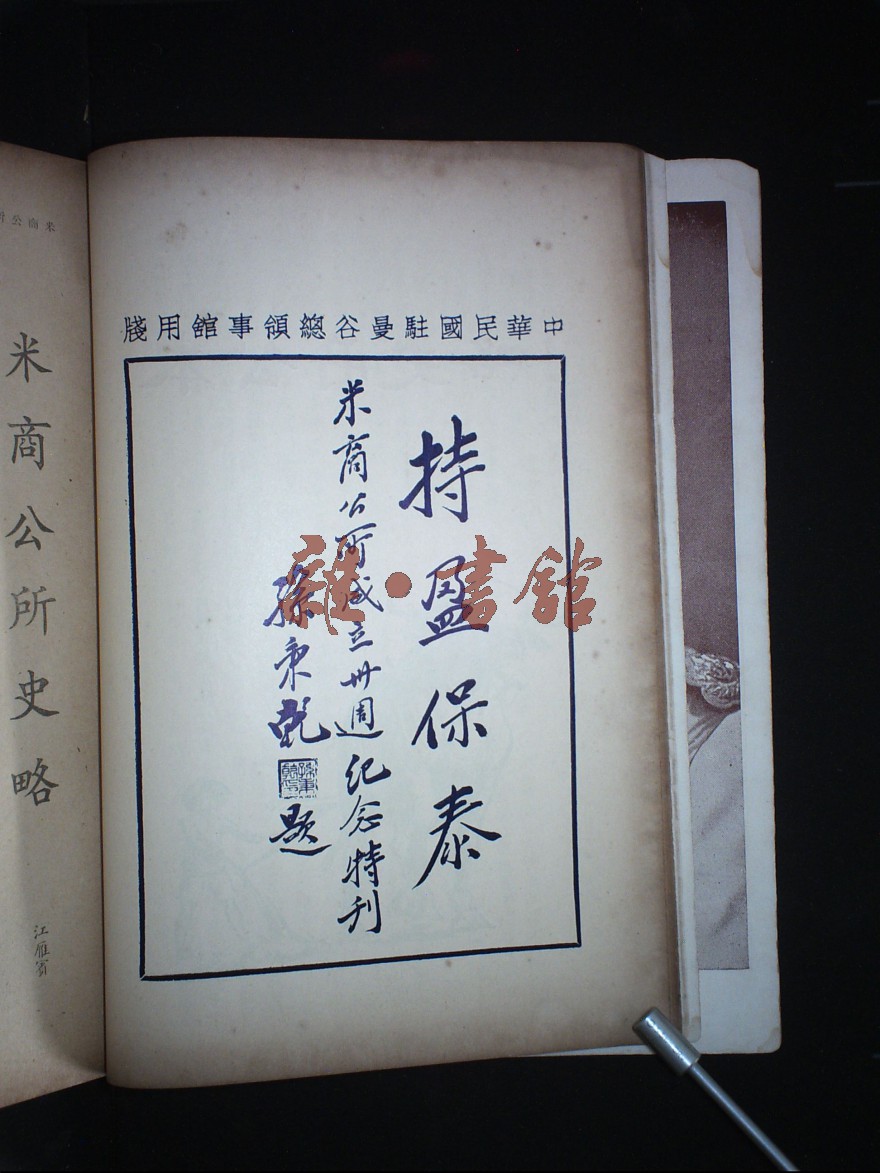 中華民國駐曼谷總領事舘用牋
持盈保泰
米商公所成立卅週紀念特刊
孫秉乾
題
雜·書舘
米商公所史略
江雁賓
米商公